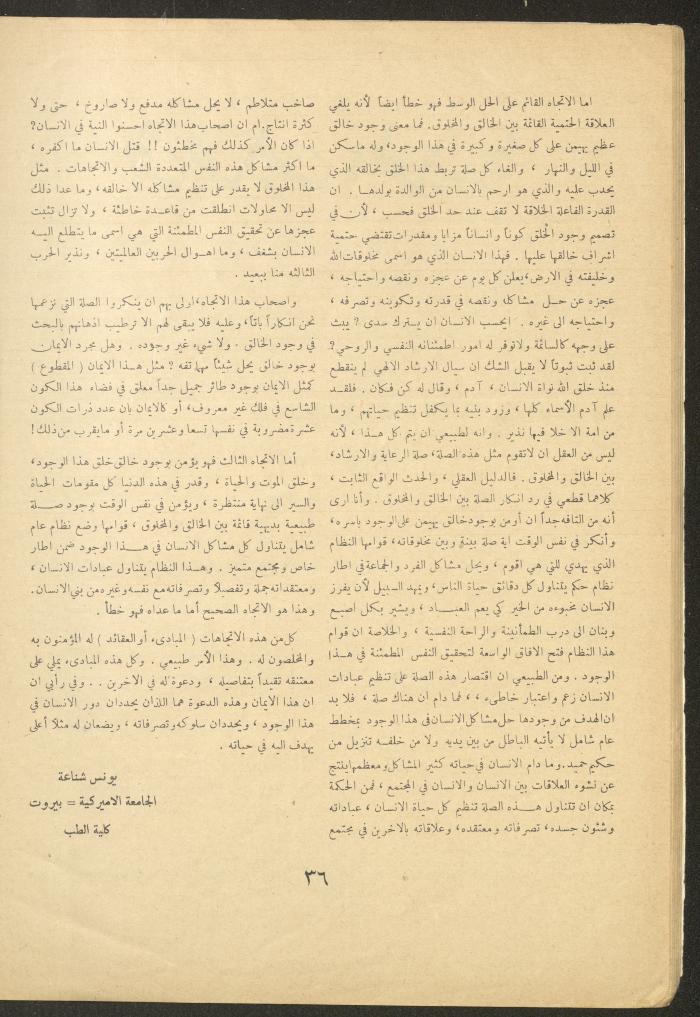 اما الاتجاه القائم على الحل الوسط فهو خطأ ايضاً لأنه يلغي
العلاقة الحتمية القائمة بين الخالق والمخلوق. فما معنى وجود خالق
عظيم يهيمن على كل صغيرة وكبيرة في هذا الوجود، وله ما سكن
في الليل والنهار ، والغاء كل صلة تربط هذا الخلق بخالقه الذي
يحدب عليه والذي هو ارحم بالانسان من الوالدة بولدها . ان
القدرة الفاعلة الخلاقة لا تقف عند حد الخلق فحسب ، لأن في
تصميم وجود الخلق كوناً وانساناً مزايا ومقدرات تقتضي حتمية
اشراف خالقها عليها . فهذا الانسان الذي هو اسمى مخلوقات الله
وخليفته في الارض، يعلن كل يوم عن عجزه ونقصه واحتياجه ،
عجزه عن حسل مشاكله ونقصه في قدرته وتكوينه وتصرفه ،
واحتياجه الى غيره . ايحسب الانسان ان يسترك سدى ? يبث
على وجهه كالسائمة ولا توفر له امور اطمئنانه النفسي والروحي؟
لقد ثبت ثبوتاً لا يقبل الشك ان سيال الارشاد الالهي لم ينقطع
منذ خلق الله نواة الانسان ، آدم ، وقال له كن فكان . فلقد
علم آدم الأسماء كلها ، وزود بنيه بما يكفل تنظيم حياتهم ، وما
من امة الا خلا فيها نذير . وانه لطبيعي ان يتم كل هذا ، لأنه
ليس من العقل ان لا تقوم مثل هذه الصلة، صلة الرعاية والارشاد،
بين الخالق والمخلوق . فالدليل العقلي ، والحدث الواقع الثابت ،
كلاهما قطعي في رد انكار الصلة بين الخالق والمخلوق . وأنا ارى
أنه من التافه جداً ان أومن بوجود خالق يهيمن على الوجود باسره،
وأنكر في نفس الوقت اية صلة بينه وبين مخلوقاته، قوامها النظام
الذي يهدي للتي هي اقوم ، ويحل مشاكل الفرد والجماعة في اطار
نظام حكم يتناول كل دقائق حياة الناس، ويمهد السبيل لأن يفرز
الانسان مخبوءه من الخير كي يعم العباد ، ويشير بكل اصبع
وبنان الى درب الطمأنينة والراحة النفسية ، والخلاصة ان قوام
هذا النظام فتح الافاق الواسعة لتحقيق النفس المطمئنة في هذا
الوجود . ومن الطبيعي ان اقتصار هذه الصلة على تنظيم عبادات
الانسان زعم واعتبار خاطىء ، ، فما دام ان هناك صلة ، فلا بد
ان الهدف من وجودها حل مشاكل الانسان في هذا الوجود بمخطط
عام شامل لا يأتيه الباطل من بين يديه ولا من خلفه تنزيل من
حكيم حميد. وما دام الانسان في حياته كثير المشاكل ومعظمها ينتج
عن نشوء العلاقات بين الانسان والانسان في المجتمع ، فمن الحكمة
بمكان ان تتناول هذه الصلة تنظيم كل حياة الانسان ، عباداته
وشئون جسده، تصرفاته ومعتقده، وعلاقاته بالاخرين في مجتمع
صاخب متلاطم ، لا يحل مشاكله مدفع ولا صاروخ ، حتى ولا
كثرة انتاج. ام ان اصحاب هذا الاتجاه احسنوا النية في الانسان؟
اذا كان الأمر كذلك فهم مخطئون !! قتل الانسان ما اكفره ،
ما اكثر مشاكل هذه النفس المتعددة الشعب والاتجاهات . مثل
هذا المخلوق لا يقدر على تنظيم مشاكله الا خالقه، وما عدا ذلك
ليس الا محاولات انطلقت من قاعدة خاطئة ، ولا تزال تثبت
عجزها عن تحقيق النفس المطمئنة التي هي اسمى ما يتطلع اليه
الانسان بشغف ، وما اهوال الحربين العالميتين ، ونذير الحرب
الثالثه منا ببعيد .
واصحاب هذا الاتجاه، اولى بهم ان ينكروا الصلة التي نزعمها
نحن انكاراً باتاً، وعليه فلا يبقى لهم الا ترطيب اذهانهم بالبحث
في وجود الخالق . ولا شيء غير وجوده . وهل مجرد الايمان
بوجود خالق يحل شيئاً مهما تفه ؟ مثل هذا الايمان ( المقطوع )
كمثل الايمان بوجود طائر جميل جداً معلق في فضاء هذا الكون
الشاسع في فلك غير معروف، أو كالايمان بان عدد ذرات الكون
عشرة مضروبة في نفسها تسعا وعشرين مرة أو ما يقرب من ذلك!
أما الاتجاه الثالث فهو يؤمن بوجود خالق خلق هذا الوجود،
وخلق الموت والحياة ، وقدر في هذه الدنيا كل مقومات الحياة
والسير الى نهاية منتظرة ، ويؤمن في نفس الوقت بوجود صلة
طبيعية بديهية قائمة بين الخالق والمخلوق ، قوامها وضع نظام عام
شامل يتناول كل مشاكل الانسان في هذا الوجود ضمن اطار
خاص ومجتمع متميز . وهذا النظام يتناول عبادات الانسان ،
ومعتقداته جملة وتفصيلاً وتصرفاته مع نفسه وغيره من بني الانسان.
وهذا هو الاتجاه الصحيح أما ما عداه فهو خطأ .
كل من هذه الاتجاهات ( المبادىء أو العقائد ) له المؤمنون به
والمخلصون له . وهذا الأمر طبيعي . وكل هذه المبادىء يملي على
معتنقه تقيداً بتفاصيله ، ودعوة له في الاخرين . . وفي رأيي ان
ان هذا الايمان وهذه الدعوة هما اللذان يحددان دور الانسان في
هذا الوجود ، ويحددان سلوكه وتصرفاته ، ويضعان له مثلاً أعلى
يهدف اليه في حياته .
يونس شناعة
الجامعة الاميركية = بيروت
كلية الطب
٣٦